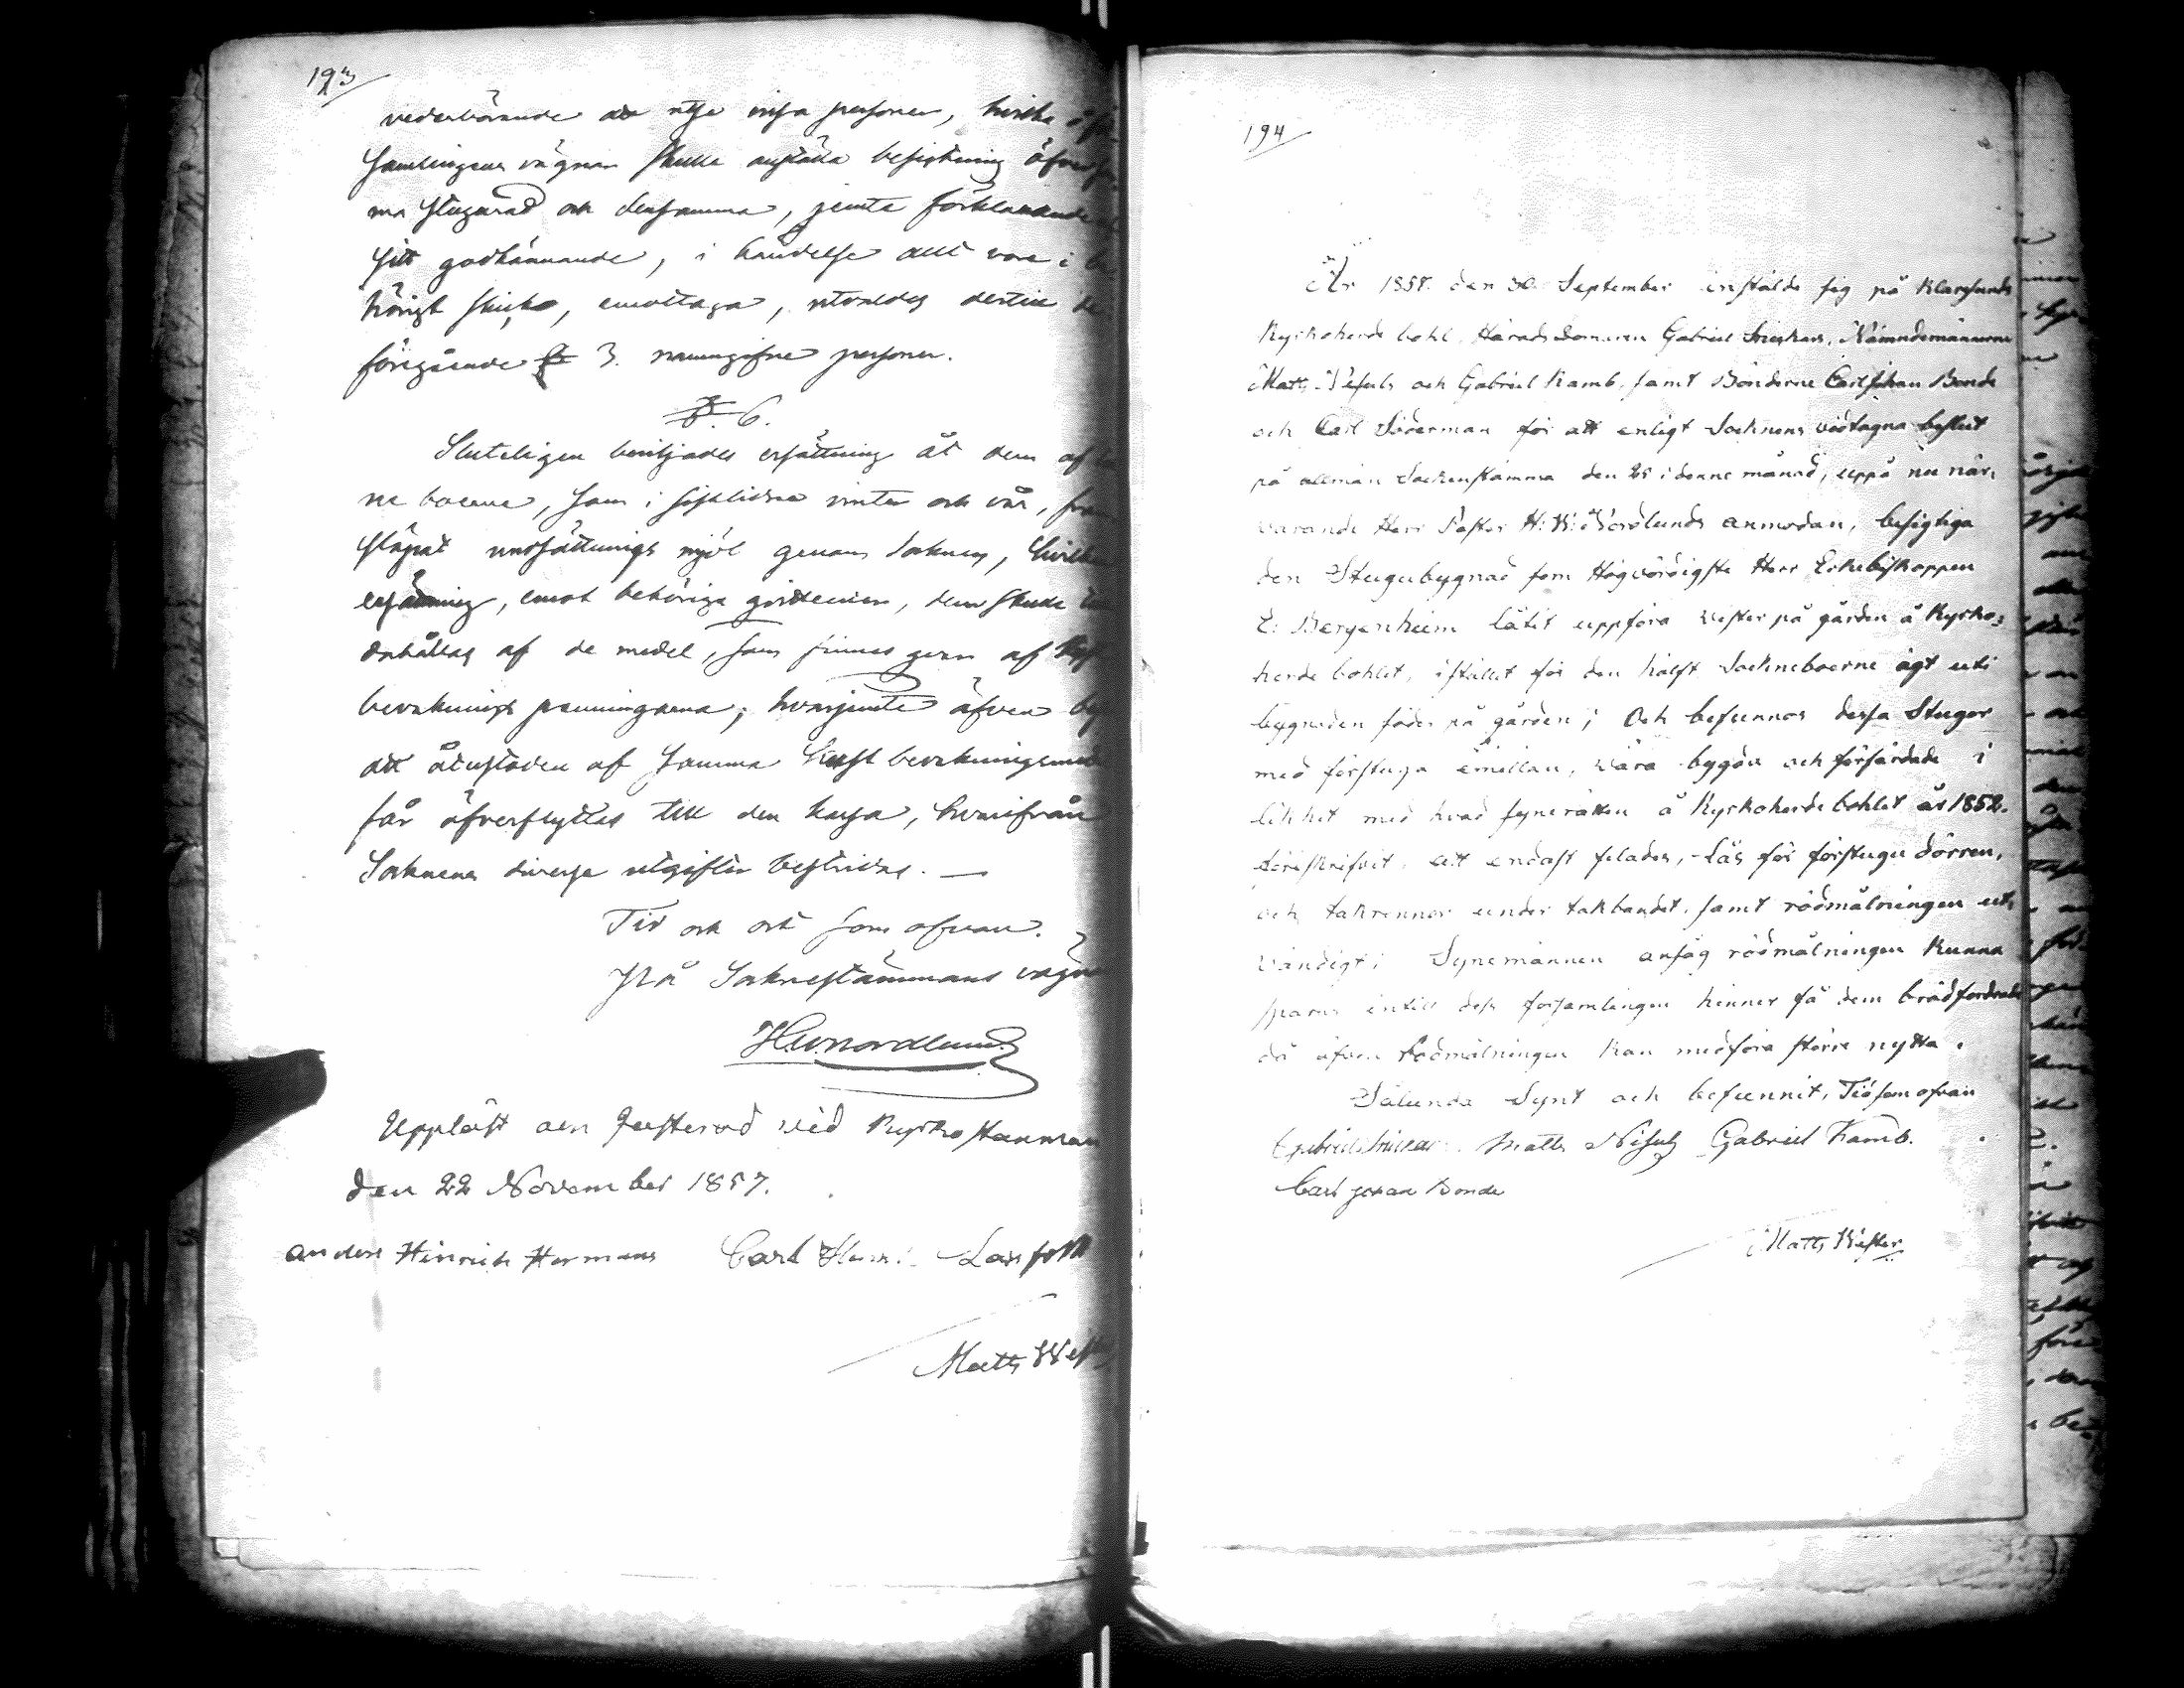 193
vederbörande att utse vissa personer, hvilka
samlingens vägnar skulle anställa besigtning öfver
ma stugurad och densamma, jemte förklarande
sitt godkännande, i händelse allt vore i be
hörigt skick, emottaga, utvaldes dertill de
föregående § 3. namngifne personer.
§. 6.
Sluteligen beviljades ersättning åt dem af
ne boerne, som i sistlidne vinter och vår, fram
släpat undsättnings mjöl genom socknen, hvilken
ersättning, emot behöriga qvittencier, dem skulle
erhållas af de medel, som finnas qvar af
bevaknings penningarna; hvarjemte äfven
att återstoden af samma bevakningsmedel
får öfverflyttas till den kassa, hvarifrån
Socknens diverse utgifter bestridas. —
Tid och ort som ofvan.
På Socknestämmans vägnar
H. W. Nordlund
Uppläst och Justerad wid Kyrko stämman
den 22 November 1857.
Anders Hinrich Hermans Carl Henr. Larsfolk
Matts West
194
År 1857. den 30. September inställde sig på
Kyrkoherde bohl. Häradsdomaren Gabriel Nämndemännerne
Matts Nisuls och Gabriel Kamb, samt Bönderne Carl Johan Bonde
och Carl Söderman för att enligt Socknens vidtagna beslut
på allmän Sockenstämma den 25 i denne månad, uppå nu när-
varande Herr Pastor H: W: Nordlunds anmodan, besigtiga
den Stugubygnad som Högvördigste Herr Erkebiskoppen
E: Bergenheim låtit uppföra wester på gården å Kyrko-
herde bohlet, istället för den hälft Sockneboerne ägt uti
bygnaden söder på gården; Och befunnos dessa Stugor
med förstuga emellan, wara bygda och förfärdade i
likhet med hvad syneräten å Kyrkoherde bohlet år 1852.
föreskrifvit, att endast felades, Lås för förstugu dörren,
och takrennor under takbandet, samt rödmålningen ut-
wändigt; Synemännen ansåg rödmålningen kunna
sparas intill dess församlingen hinner få dem brädfordrade
då äfven Rödmålningen kan medföra större nytta.
Sålunda Synt och befunnit, Tid som ofvan
Gabriel Matts Nisuls Gabriel Kamb.
Carl Johan Bonde
Matts Wester